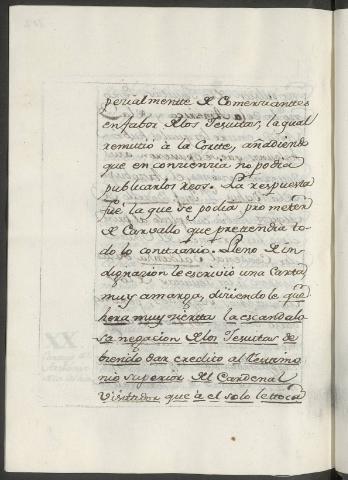 pecialmentte de Comerciantes
en fabor de los Jesuitas, la qual
remitio à la Corte, añadiendo
que en conciencia no podia
publicarlos reos. La respuesta
fue la que se podia prometer
de Carvallo que pretendia to-
do lo contrario. Lleno de in-
dignazion le escrivio una Carta
muy amarga, diciendole que
hera muy cierta la escandalo
sa negacion de los Jesuitas de
biendo dar credito al testimo
nio superior del Cardenal
Visitador que à el solo le toca
XX